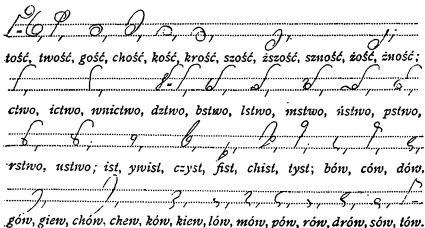 tość, twość, gość, chość, kość, krość, szość, ższość, szność, żość, żność;
ctwo, ictwo, wnictwo, dztwo, bstwo, lstwo, mstwo, ństwo, pstwo,
rstwo, ustwo; ist, ywist, czyst, fist, chist, tyst; bów, ców, dów,
gów, giew, chów, chew, ków, kiew, lów, mów, pów, rów, drów, sów, tów.